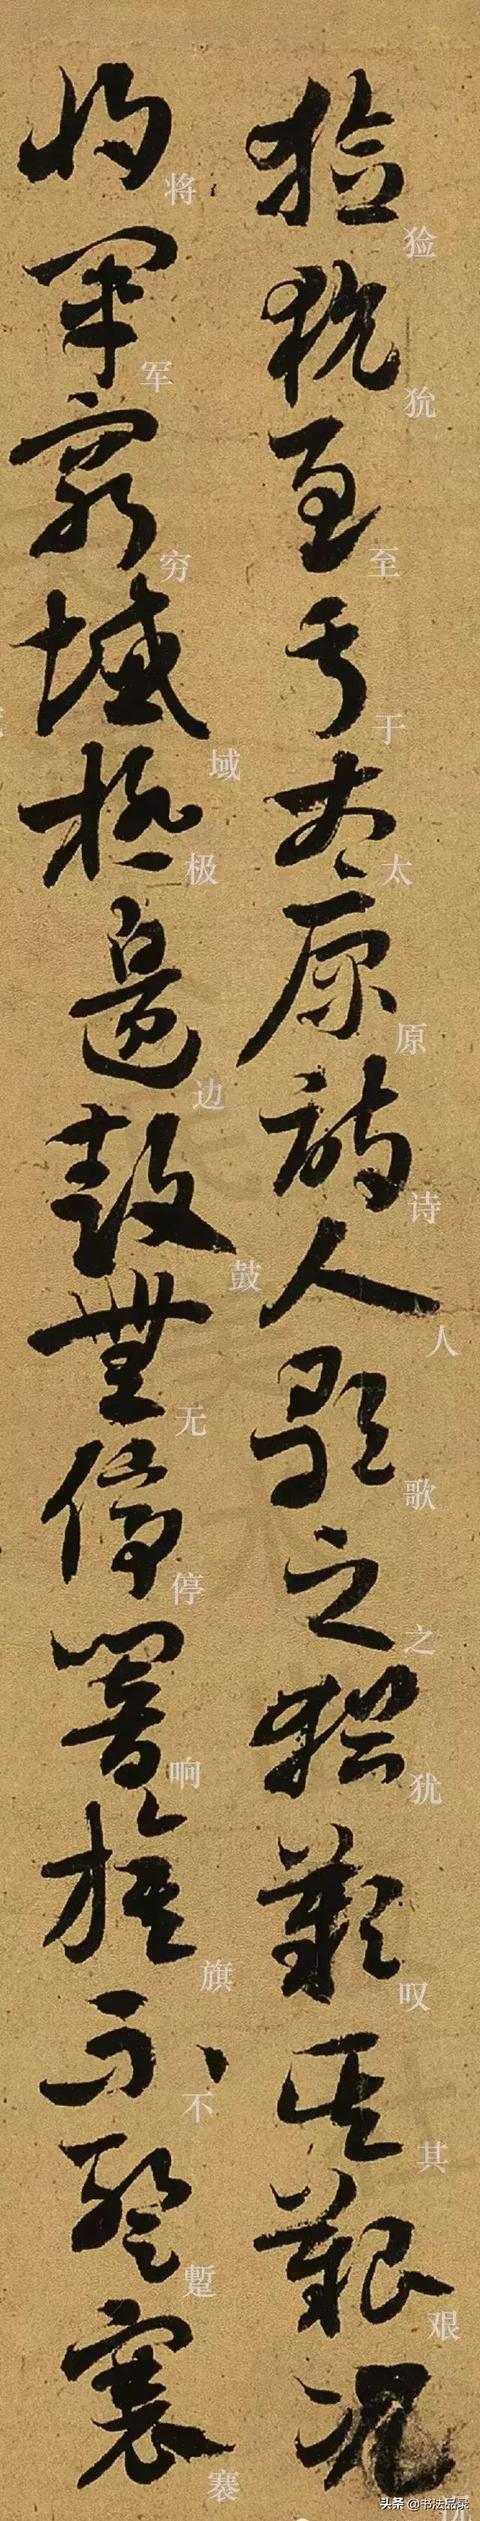 獫狁至于太原詩人歌之猶歎其艱况
猃狁至于太原诗人歌之犹叹其艰况
將軍窮域極邊鼓無停響旗不蹔褰
将军穷域极边鼓无停响旗不蹔褰
头条 @书法品录